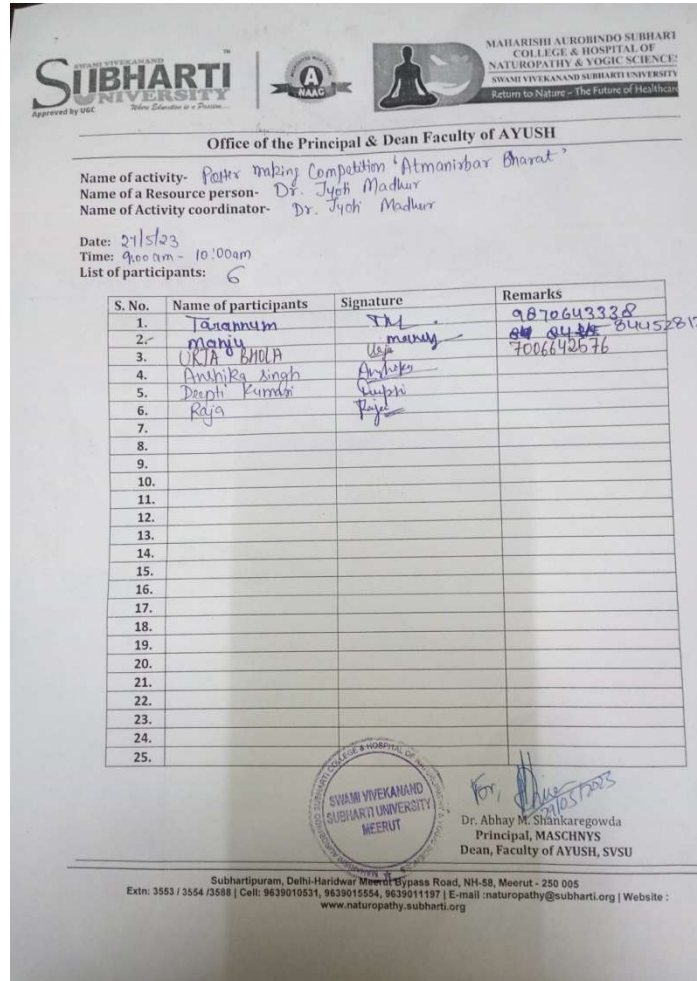 SWAMI VIVEKANAND
SUBHARTI
UNIVERSITY
Approved by UGC
Where Education is a Passion...
TM
NAAC
A
MAHARISHI AUROBINDO SUBHARTI
COLLEGE & HOSPITAL OF
NATUROPATHY & YOGIC SCIENCES
SWAMI VIVEKANAND SUBHARTI UNIVERSITY
Return to Nature - The Future of Healthcare
Office of the Principal & Dean Faculty of AYUSH
Name of activity- Poster making Competition 'Atmanirbar Bharat'
Name of a Resource person- Dr. Jyoti Madhur
Name of Activity coordinator- Dr. Jyoti Madhur
Date: 29/5/23
Time: 9:00 am - 10:00am
List of participants: 6
S. No. Name of participants Signature Remarks
1. Tarannum TM 9870643338
2. Manju manju
3. URJA BHOLA Urja 7006642676
4. Anshika singh Anshika
5. Deepti Kumari Deepti
6. Raja Raja
7.
8.
9.
10.
11.
12.
13.
14.
15.
16.
17.
18.
19.
20.
21.
22.
23.
24.
25.
SWAMI VIVEKANAND
SUBHARTI UNIVERSITY
MEERUT
For,
29/05/2023
Dr. Abhay M. Shankaregowda
Principal, MASCHNYS
Dean, Faculty of AYUSH, SVSU
Subhartipuram, Delhi-Haridwar Meerut Bypass Road, NH-58, Meerut - 250 005
Extn: 3553 / 3554 /3588 | Cell: 9639010531, 9639015554, 9639011197 | E-mail :naturopathy@subharti.org | Website :
www.naturopathy.subharti.org